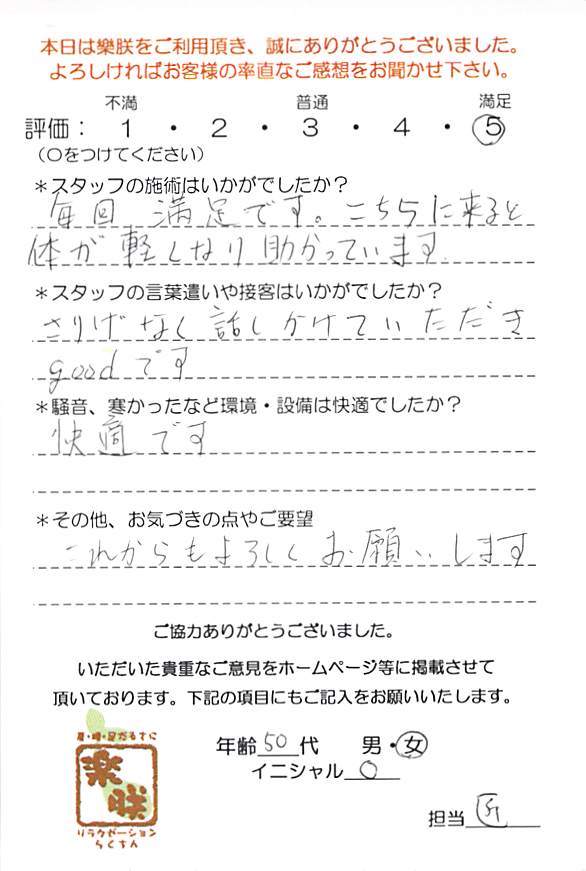 本日は樂朕をご利用頂き、誠にありがとうございました。
よろしければお客様の率直なご感想をお聞かせ下さい。
不満 普通 満足
評価: 1 ・ 2 ・ 3 ・ 4 ・ 5
(○をつけてください)
*スタッフの施術はいかがでしたか?
毎回 満足です。こちらに来ると
体が軽くなり助かっています
*スタッフの言葉遣いや接客はいかがでしたか?
さりげなく話しかけていただき
goodです
*騒音、寒かったなど環境・設備は快適でしたか?
快適です
*その他、お気づきの点やご要望
これからもよろしくお願いします
ご協力ありがとうございました。
いただいた貴重なご意見をホームページ等に掲載させて
頂いております。下記の項目にもご記入をお願いいたします。
年齢 50 代 男・女
イニシャル O
楽朕
リラクゼーション
らくちん
担当